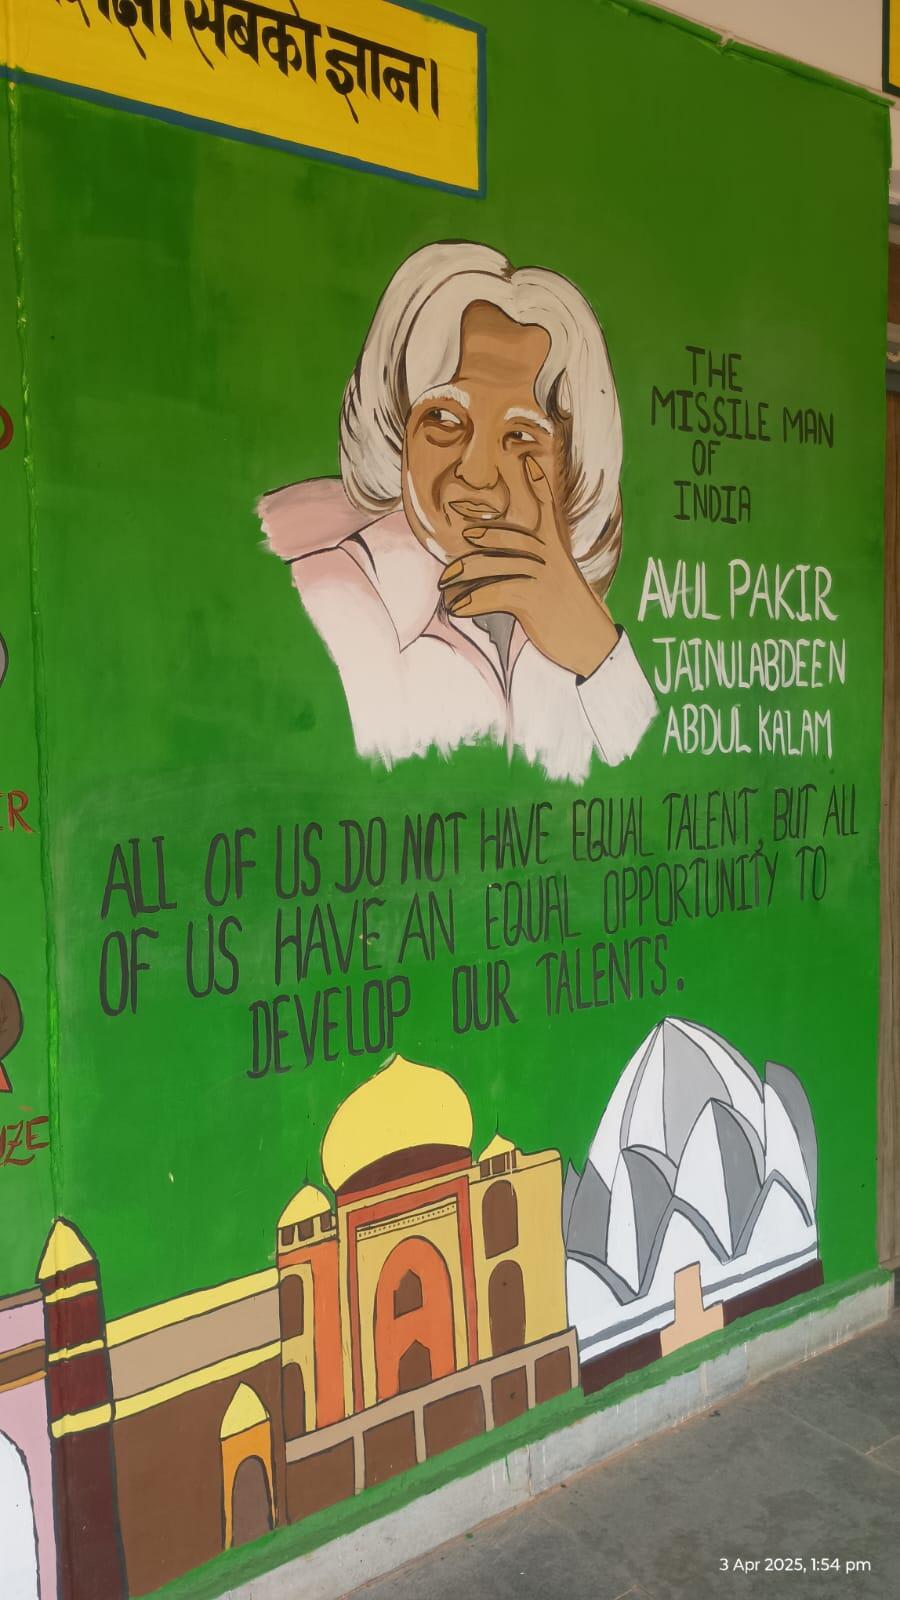 सबको ज्ञान।
THE
MISSILE MAN
OF
INDIA
AVUL PAKIR
JAINULABDEEN
ABDUL KALAM
ALL OF US DO NOT HAVE EQUAL TALENT, BUT ALL
OF US HAVE AN EQUAL OPPORTUNITY TO
DEVELOP OUR TALENTS.
3 Apr 2025, 1:54 pm